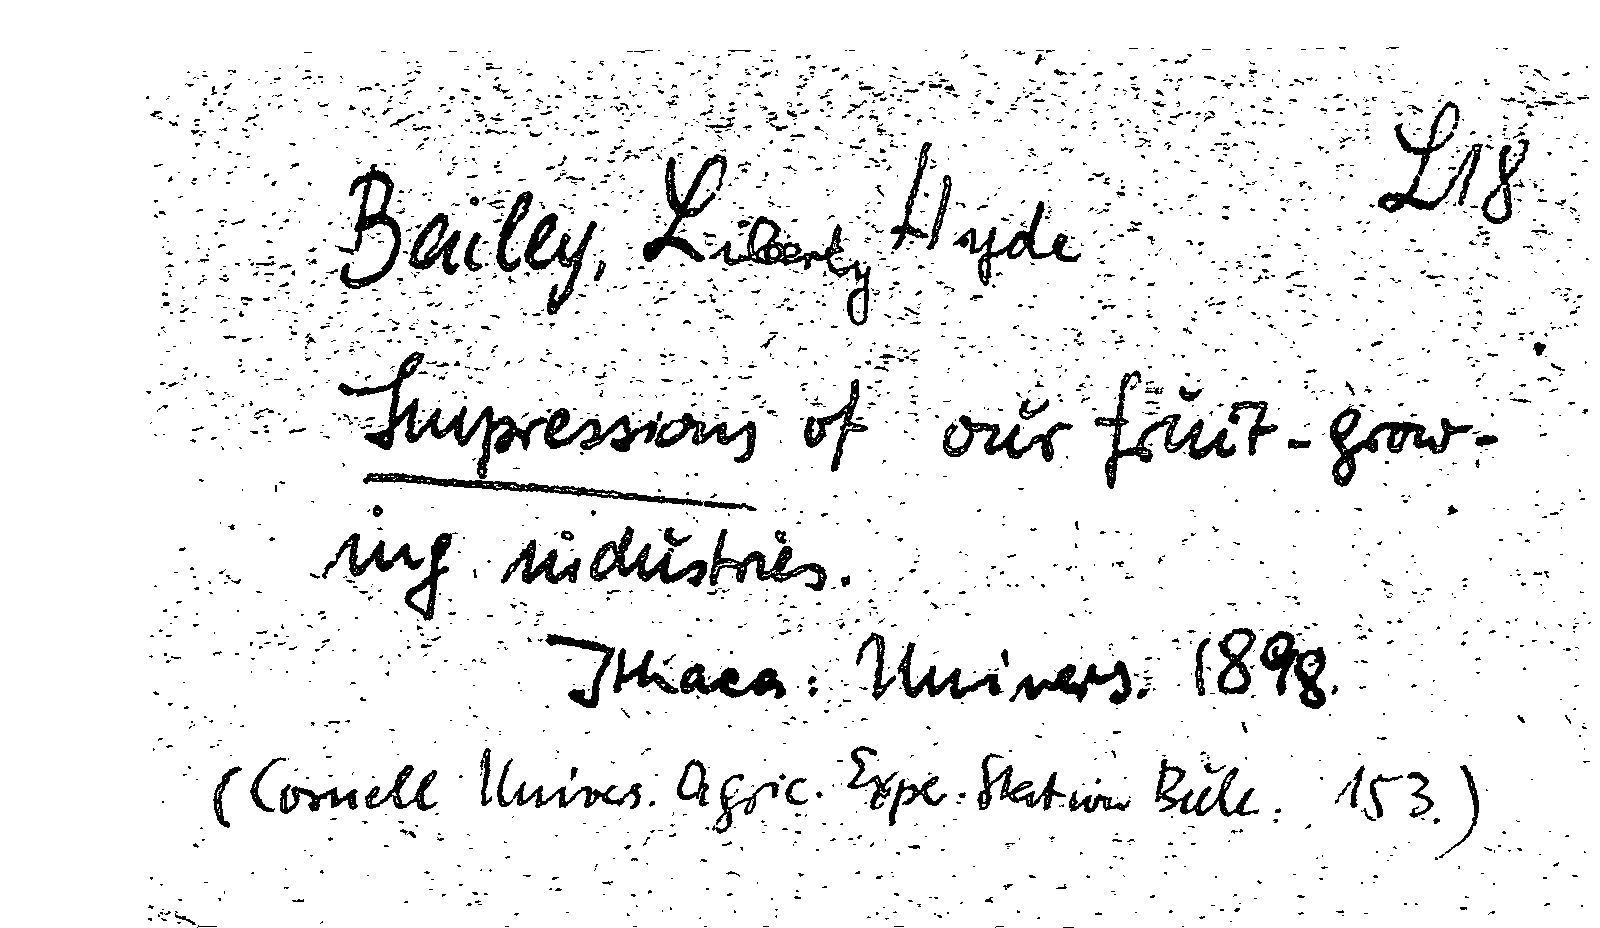 L18
Bailey, Liberty Hyde
Impressions of our fruit-grow-
ing industries.
Ithaca: Univers. 1898.
(Cornell Univers. Agric. Expe. Station Bull. 153.)